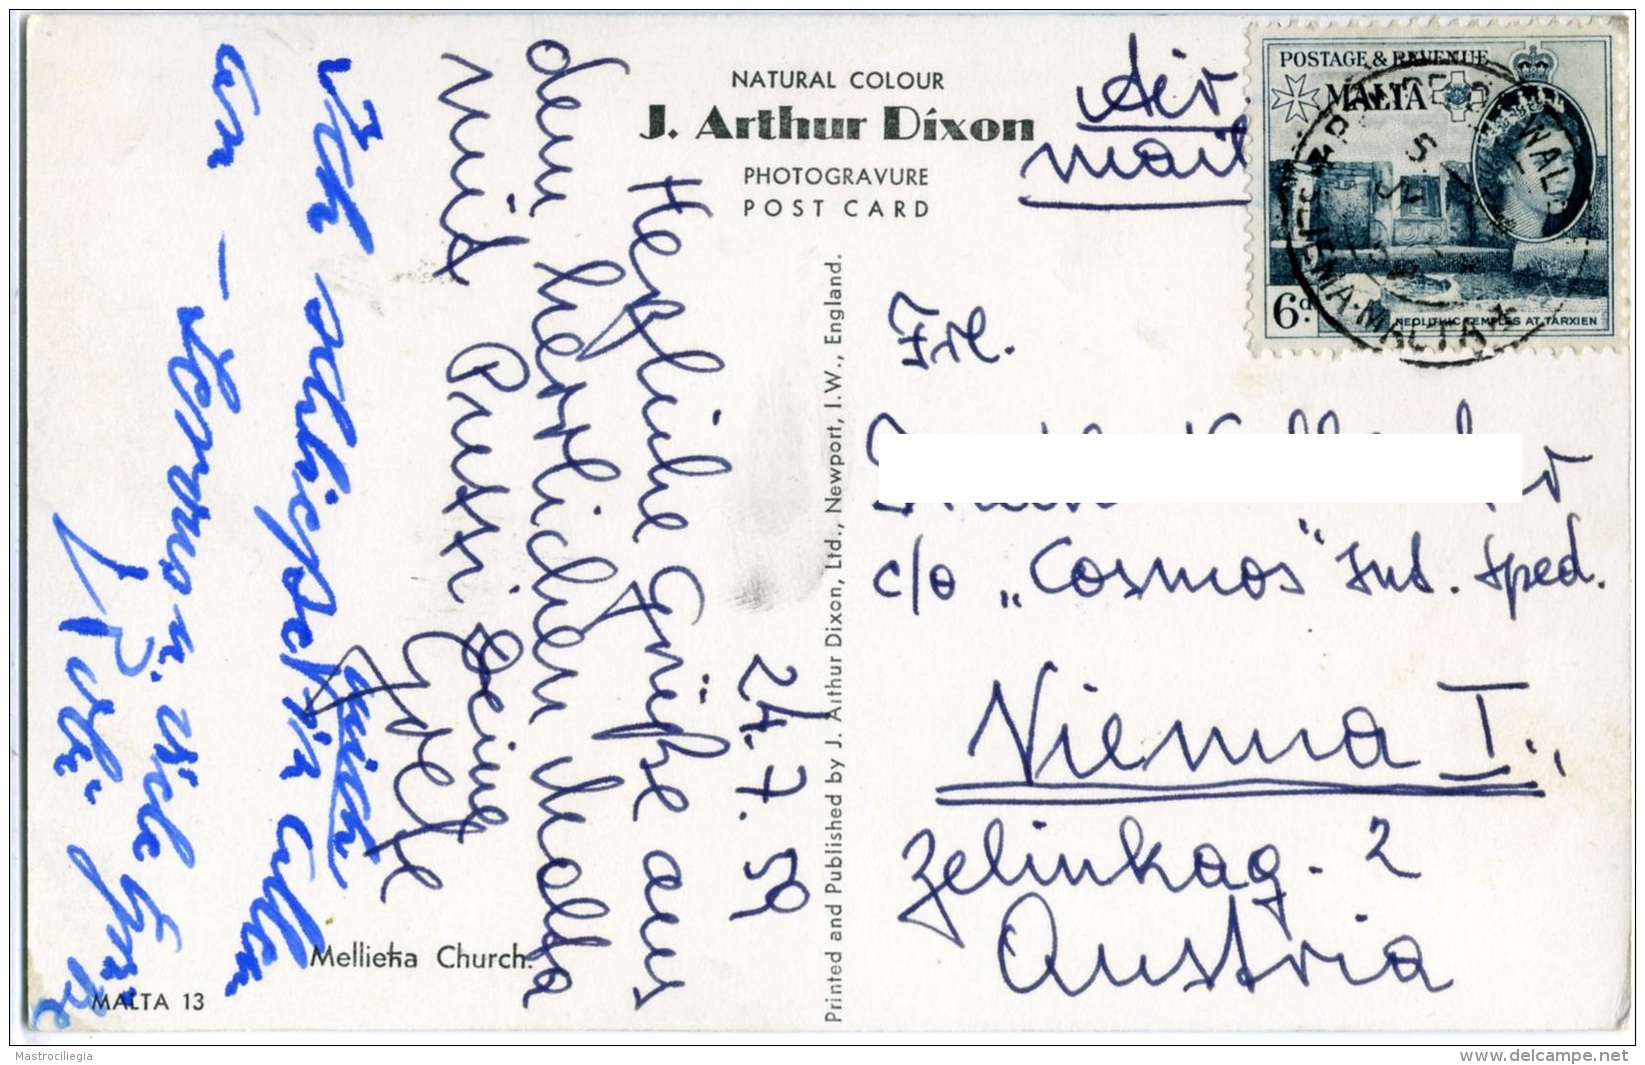 NATURAL COLOUR
J. Arthur Dixon
PHOTOGRAVURE
POST CARD
Air
mail
POSTAGE & REVENUE
MALTA
6d.
NEOLITHIC TEMPLES AT TARXIEN
SLIEMA·MALTA
24.7.59
Herzliche Grüße aus
dem herrlichen Malta
mit Pussi Deine
Gretl
Ich schließe mich allen
an - Servus u. viele
Frl.
c/o „Cosmos" Int. Sped.
Vienna I.,
Zelinkag. 2
Austria
Printed and Published by J. Arthur Dixon, Ltd., Newport, I.W., England.
Mellieħa Church.
MALTA 13
Mastrociliegia
www.delcampe.net